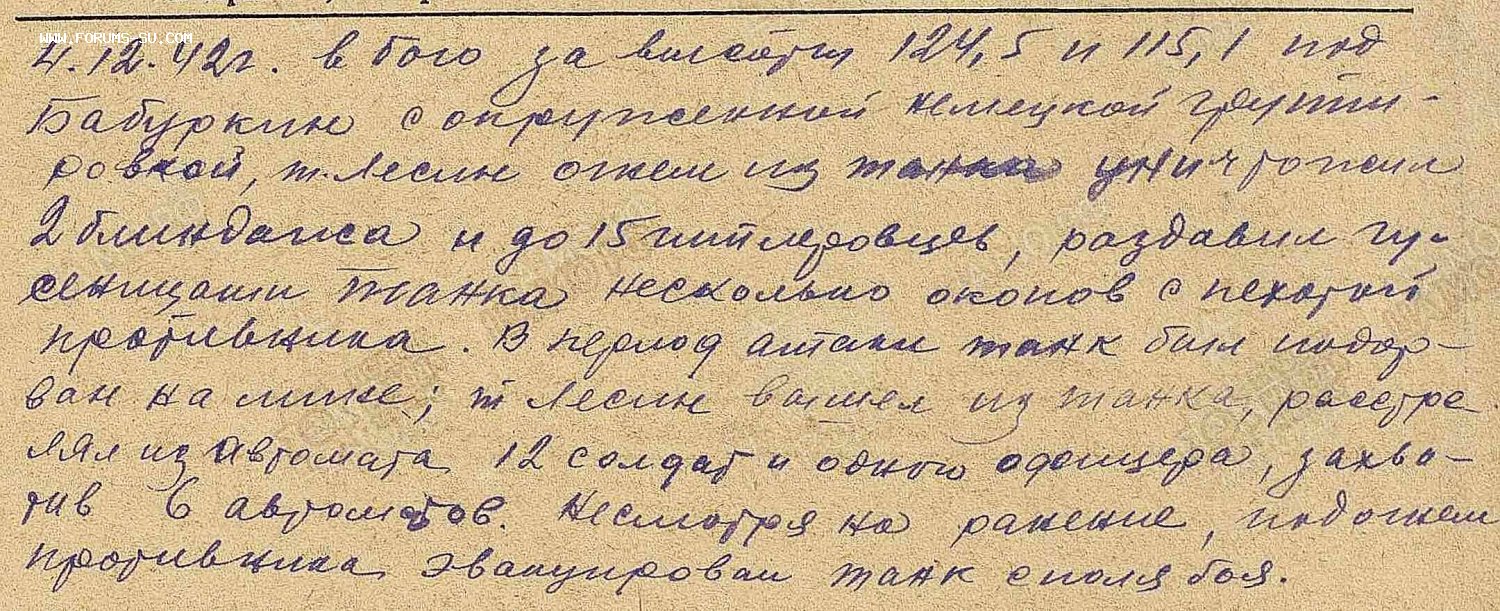 WWW.FORUMS-SU.COM
4.12.42г. в бою за высоты 124,5 и 115,1 под
Бабуркин с окруженной немецкой группи-
ровкой, т. Лесин огнем из танка уничтожил
2 блиндажа и до 15 гитлеровцев, раздавил гу-
сеницами танка несколько окопов с пехотой
противника. В период атаки танк был подор-
ван на мине; т Лесин вышел из танка, расстре
лял из автомата 12 солдат и одного офицера, захва-
тив 6 автоматов. Несмотря на ранение, под огнем
противника эвакуировал танк с поля боя.